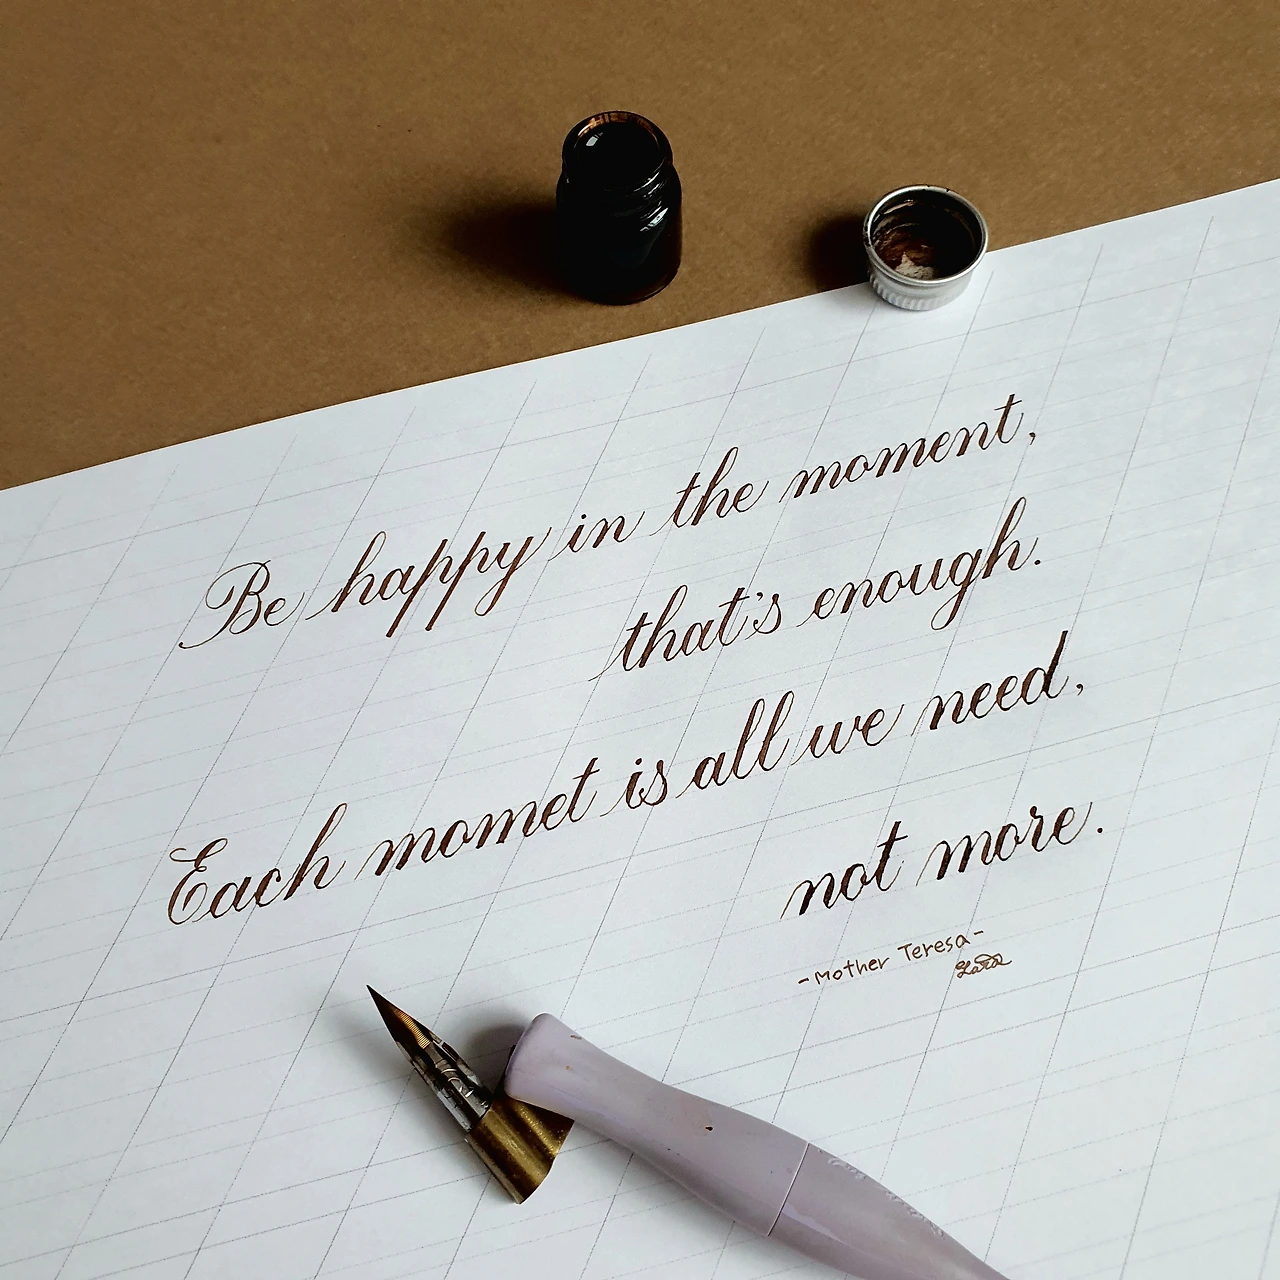 Be happy in the moment,
that's enough.
Each momet is all we need,
not more.
-Mother Teresa-
Lara